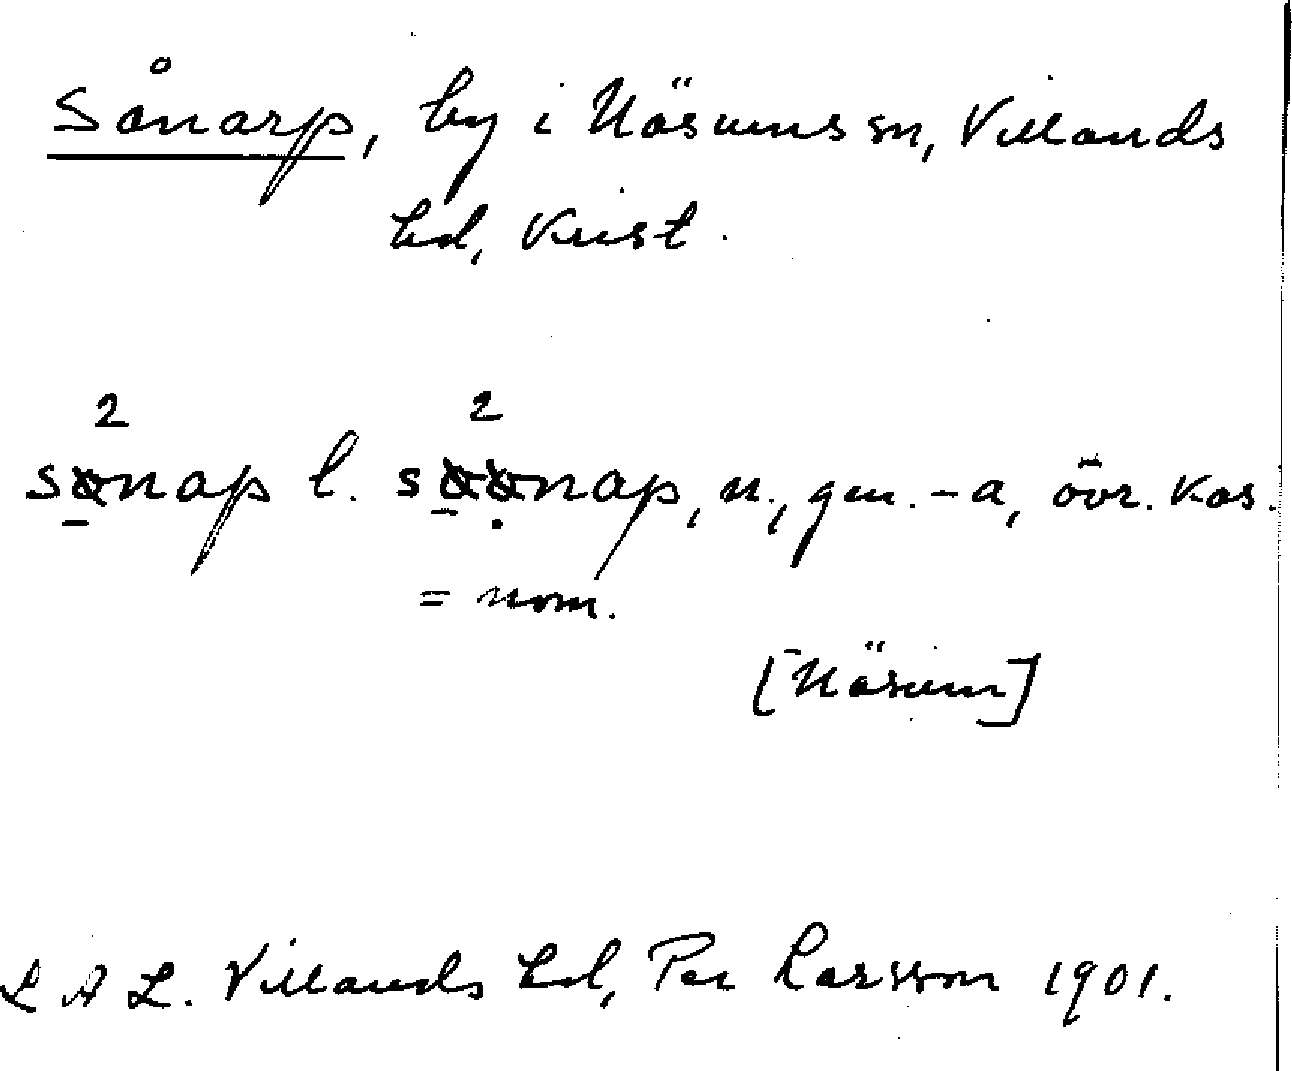 Sånarp, by i Näsums sn, Villands
hd, Krist.
2 2
sånap l. såånap, n., gen. -a, övr. kas.
= nom.
[Näsum]
L A L. Villands hd, Per Larsson 1901.